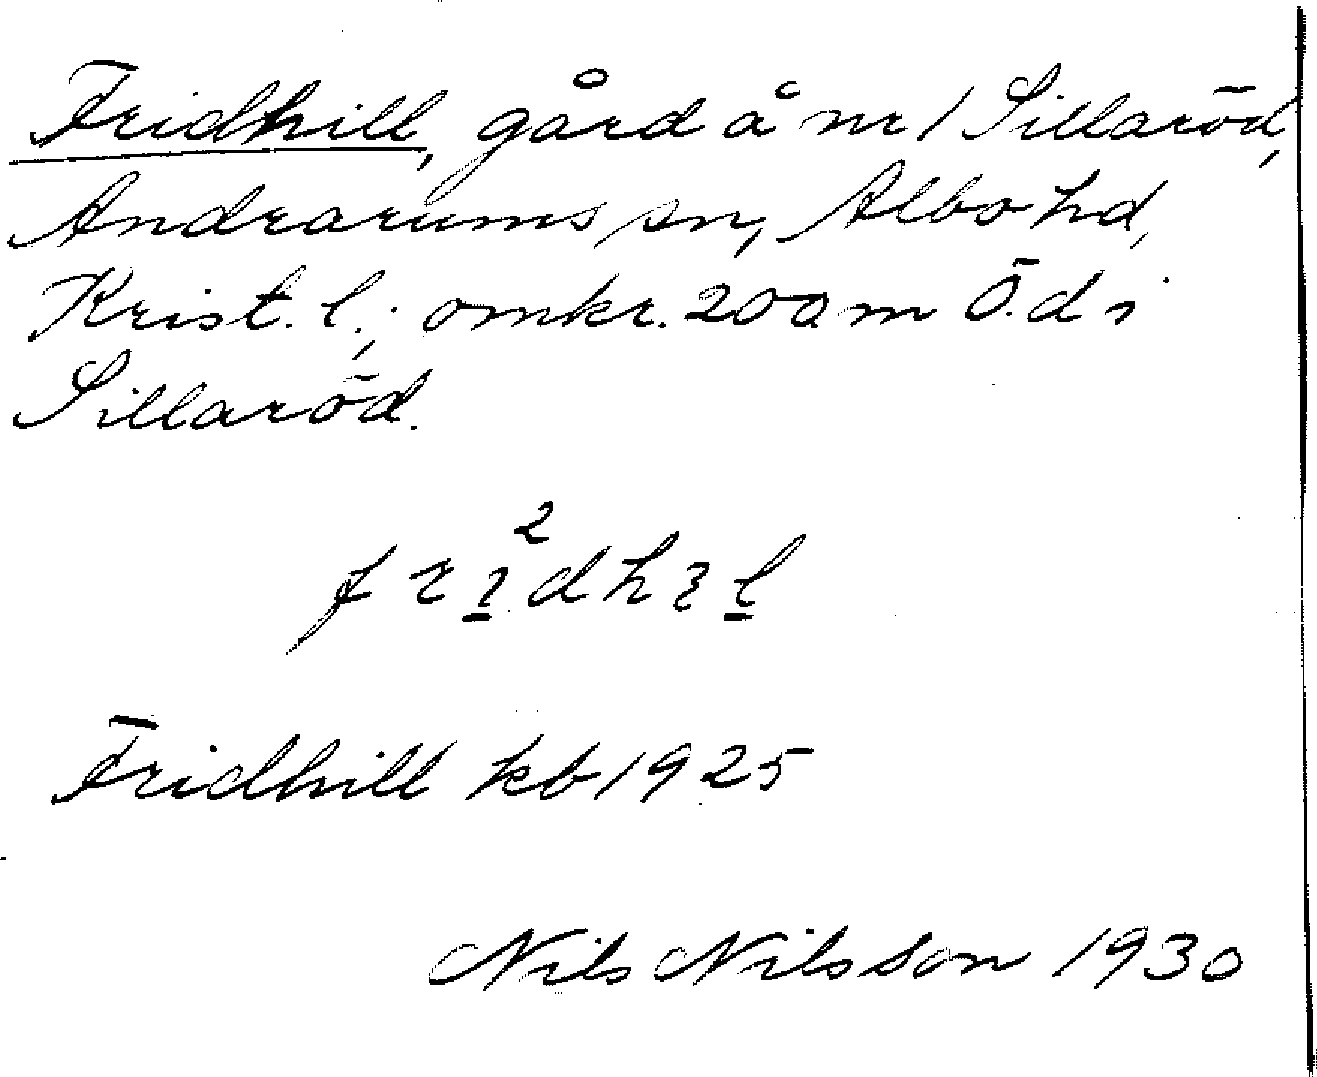 Fridhill, gård å nr 1 Sillaröd,
Andrarums sn, Albo hd,
Krist. l.; omkr. 200 m Ö. d i
Sillaröd.
Fridhill kb 1925
Nils Nilsson 1930